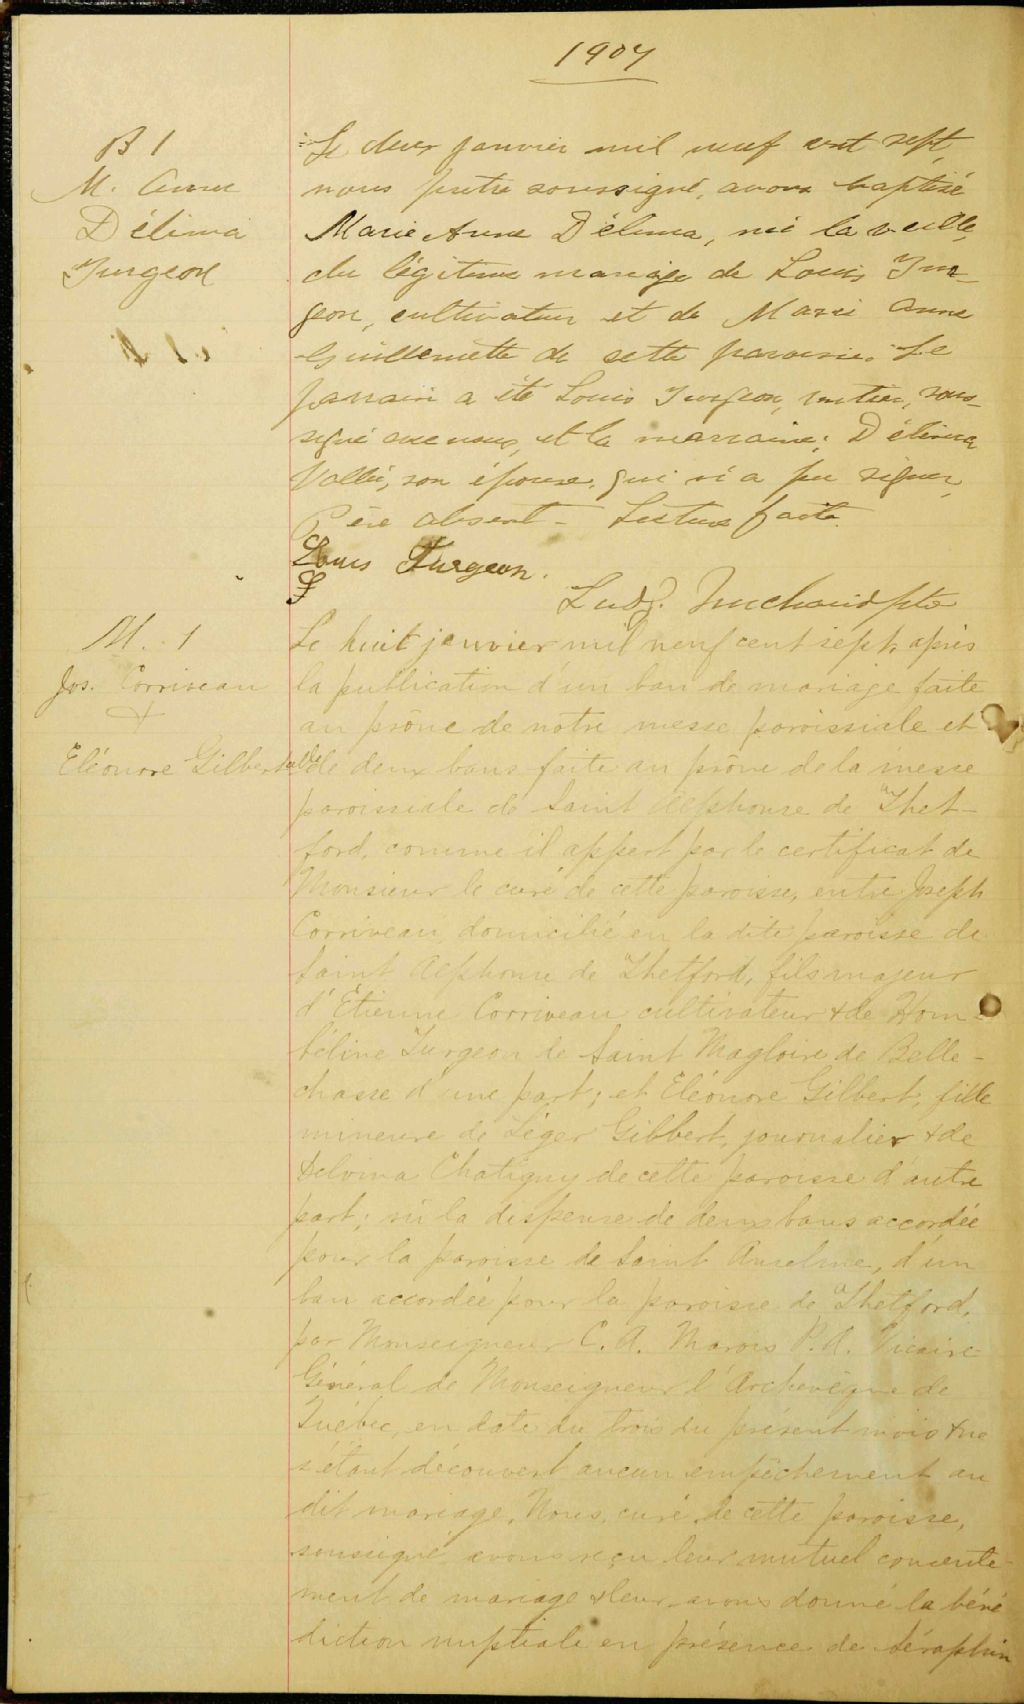 1907
B 1
M. Anne
Délima
Turgeon
Le deux janvier mil neuf cent sept,
nous prêtre soussigné, avons baptisé
Marie Anne Délima, née la veille,
du légitime mariage de Louis Tur-
geon, cultivateur et de Marie Anne
Guillemette de cette paroisse. Le
parrain a été Louis Turgeon, rentier, sous-
signé avec nous, et la marraine, Délima
Vallée, son épouse, qui n'a pu signer,
Père absent - Lecture faite.
Louis Turgeon.
Ptre
M. 1
Jos. Corriveau
&
Eléonore Gilbert
Le huit janvier mil neuf cent sept, après
la publication d'un ban de mariage faite
au prône de notre messe paroissiale et
de deux bans faite au prône de la messe
paroissiale de Saint Alphonse de Thet-
ford, comme il appert par le certificat de
Monsieur le curé de cette paroisse, entre Joseph
Corriveau, domicilié en la dite paroisse de
Saint Alphonse de Thetford, fils majeur
d'Etienne Corriveau cultivateur & de Hom-
béline Turgeon de Saint Magloire de Belle-
chasse d'une part; et Eléonore Gilbert, fille
mineure de Léger Gilbert, journalier & de
Delvina Chatigny de cette paroisse d'autre
part; vu la dispense de deux bans accordée
pour la paroisse de Saint Anselme, d'un
ban accordée pour la paroisse de Thetford,
par Monseigneur C. A. Marois P. A. Vicaire
Général de Monseigneur l'Archevêque de
Québec, en date du trois du présent mois & ne
s'étant découvert aucun empêchement au
dit mariage, Nous, curé de cette paroisse,
soussigné, avons reçu leur mutuel consente-
ment de mariage & leur avons donné la béné
diction nuptiale en présence de Séraphin